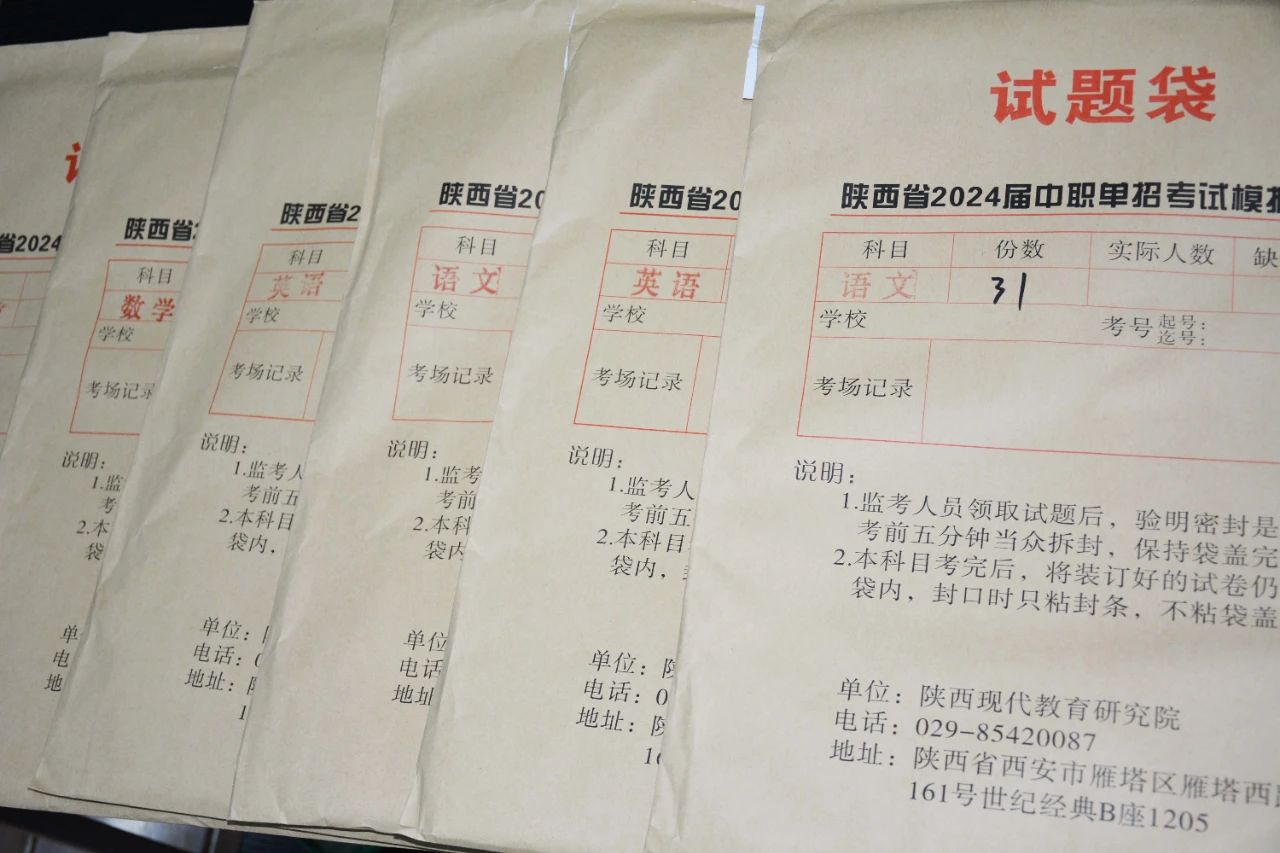 试题袋
陕西省2024届中职单招考试模拟
科目 份数 实际人数 缺
语文 31
学校 考号 起号:
迄号:
考场记录
说明:
1.监考人员领取试题后,验明密封是
考前五分钟当众拆封,保持袋盖完
2.本科目考完后,将装订好的试卷仍
袋内,封口时只粘封条,不粘袋盖
单位:陕西现代教育研究院
电话:029-85420087
地址:陕西省西安市雁塔区雁塔西
161号世纪经典B座1205
陕西省20
科目
英语
学校
考场记录
说明:
1.监考人
考前五
2.本科目
袋内,
单位:陕
电话:0
地址:陕
16
陕西省20
科目
语文
学校
考场记录
说明:
1.监考
考前
2.本科
袋内
单位
电话
地址
陕西省2
科目
英语
学校
考场记录
说明:
1.监考人
考前五
2.本科目
袋内,
单位:
电话:0
地址:
1
陕西省
科目
数学
学校
考场记录
说明:
1.监
考
2.本
袋
单
电
地
省2024